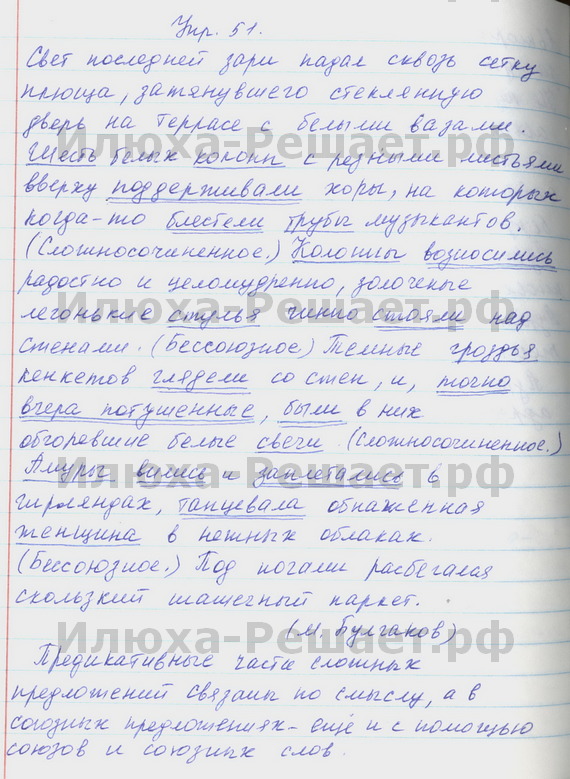 Упр. 51.
Свет последней зари падал сквозь сетку
плюща, затянувшего стеклянную
дверь на террасе с белыми вазами.
Шесть белых колонн с резными листьями
вверху поддерживали хоры, на которых
когда-то блестели трубы музыкантов.
(Сложносочиненное.) Колонны возносились
радостно и целомудренно, золоченые
легонькие стулья чинно стояли над
стенами. (Бессоюзное) Темные гроздья
кенкетов глядели со стен, и, точно
вчера потушенные, были в них
обгоревшие белые свечи. (Сложносочиненное.)
Амуры вились и заплетались в
гирляндах, танцевала обнаженная
женщина в нежных облаках.
(Бессоюзное.) Под ногами разбегался
скользкий шашечный паркет.
(М. Булгаков)
Предикативные части сложных
предложений связаны по смыслу, а в
союзных предложениях - ещё и с помощью
союзов и союзных слов.
Илюха-Решает.рф
Илюха-Решает.рф
Илюха-Решает.рф
Илюха-Решает.рф
Илюха-Решает.рф